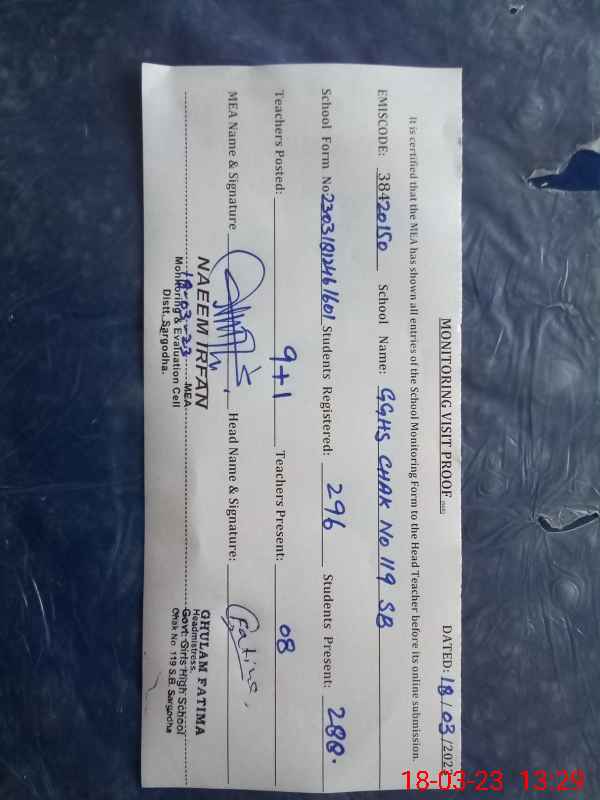 MONITORING VISIT PROOF
DATED: 18/03/202
It is certified that the MEA has shown all entries of the School Monitoring Form to the Head Teacher before its online submission.
EMISCODE: 38420150 School Name: GGHS CHAK No 119 SB
School Form No 23031812461601 Students Registered: 296 Students Present: 288.
Teachers Posted: 9+1 Teachers Present: 08
MEA Name & Signature Head Name & Signature: Fatima
NAEEM IRFAN
18-03-23 MEA
Monitoring & Evaluation Cell
Distt. Sargodha.
GHULAM FATIMA
Headmistress,
Govt: Girls High School
Chak No 119 S.B. Sargodha
18-03-23 13:29